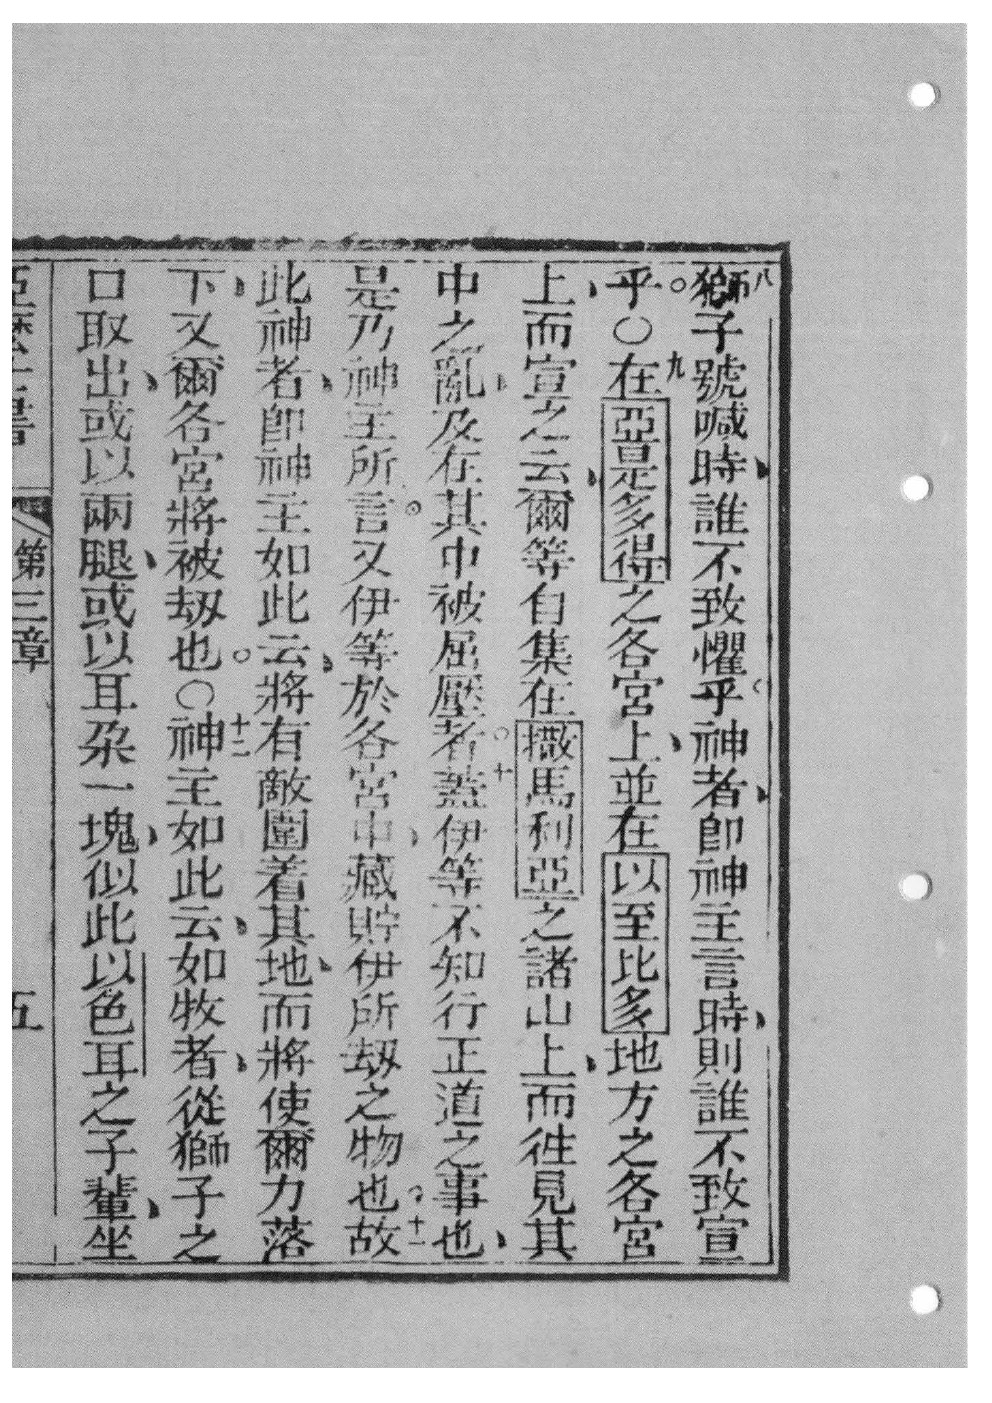 八獅子號喊時、誰不致懼乎。神者、即神主言時、則誰不致宣
乎。○九在亞是多得之各宮上、並在以至比多地方之各宮
上、而宣之云、爾等自集在撒馬利亞之諸山上、而徃見其
中之亂、及在其中被屈壓者。十蓋伊等不知行正道之事也、
是乃神主所言。又伊等於各宮中、藏貯伊所刼之物也。十一故
此神者、即神主如此云、將有敵圍着其地、而將使爾力落
下、又爾各宮將被刼也。○十二神主如此云、如牧者、從獅子之
口取出、或以兩腿、或以耳朶一塊、似此以色耳之子輩、坐
第三章 五